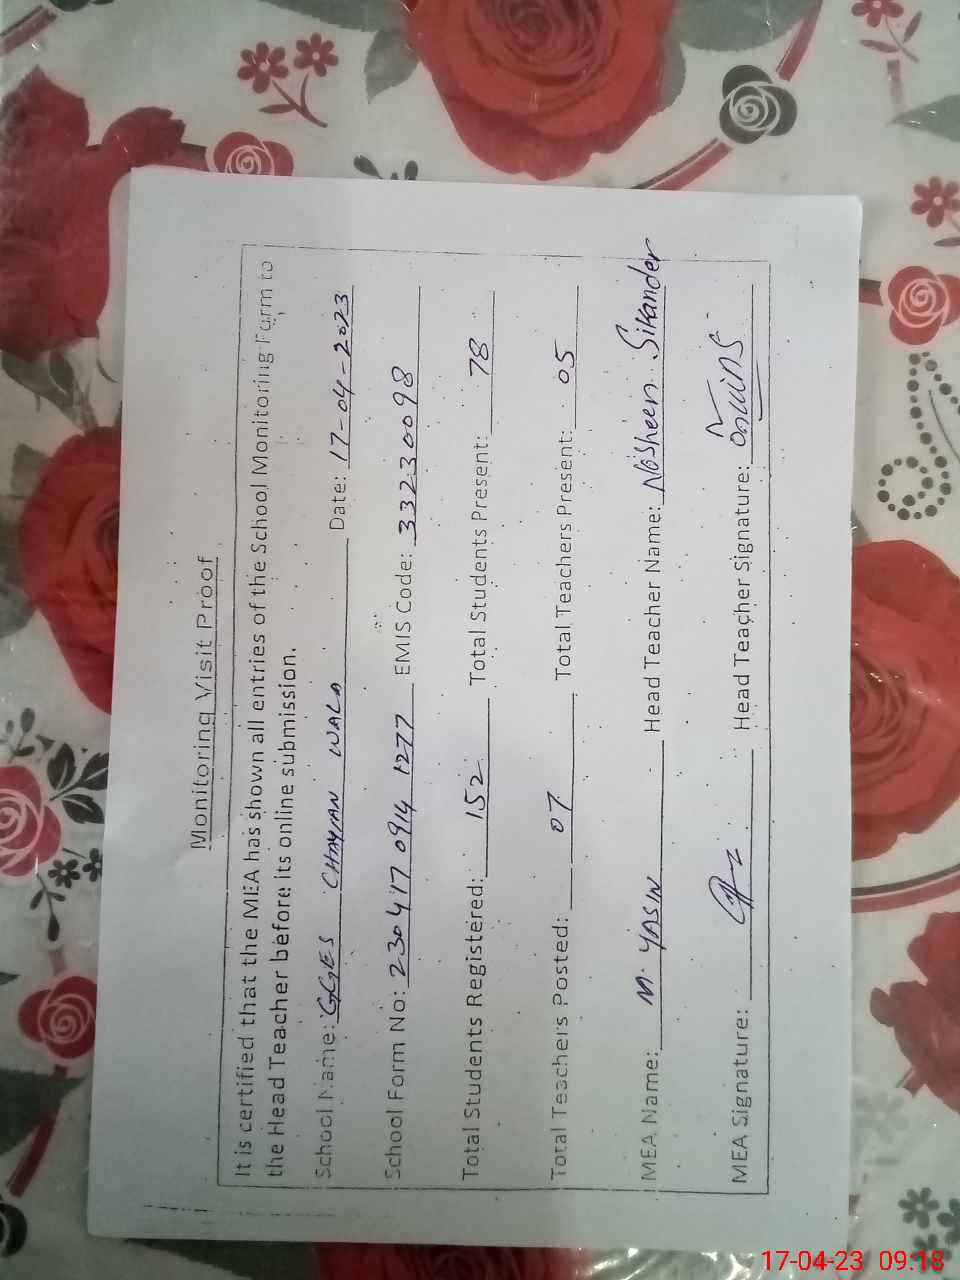 Monitoring Visit Proof
It is certified that the MEA has shown all entries of the School Monitoring Form to
the Head Teacher before its online submission.
School Name: GGES CHAYIAN WALA Date: 17-04-2023
School Form No: 230417 0914 1277 EMIS Code: 33230098
Total Students Registered: 152 Total Students Present: 78
Total Teachers Posted: 07 Total Teachers Present: 05
MEA Name: M. YASIN Head Teacher Name: Nosheen Sikander
MEA Signature: Head Teacher Signature:
17-04-23 09:18